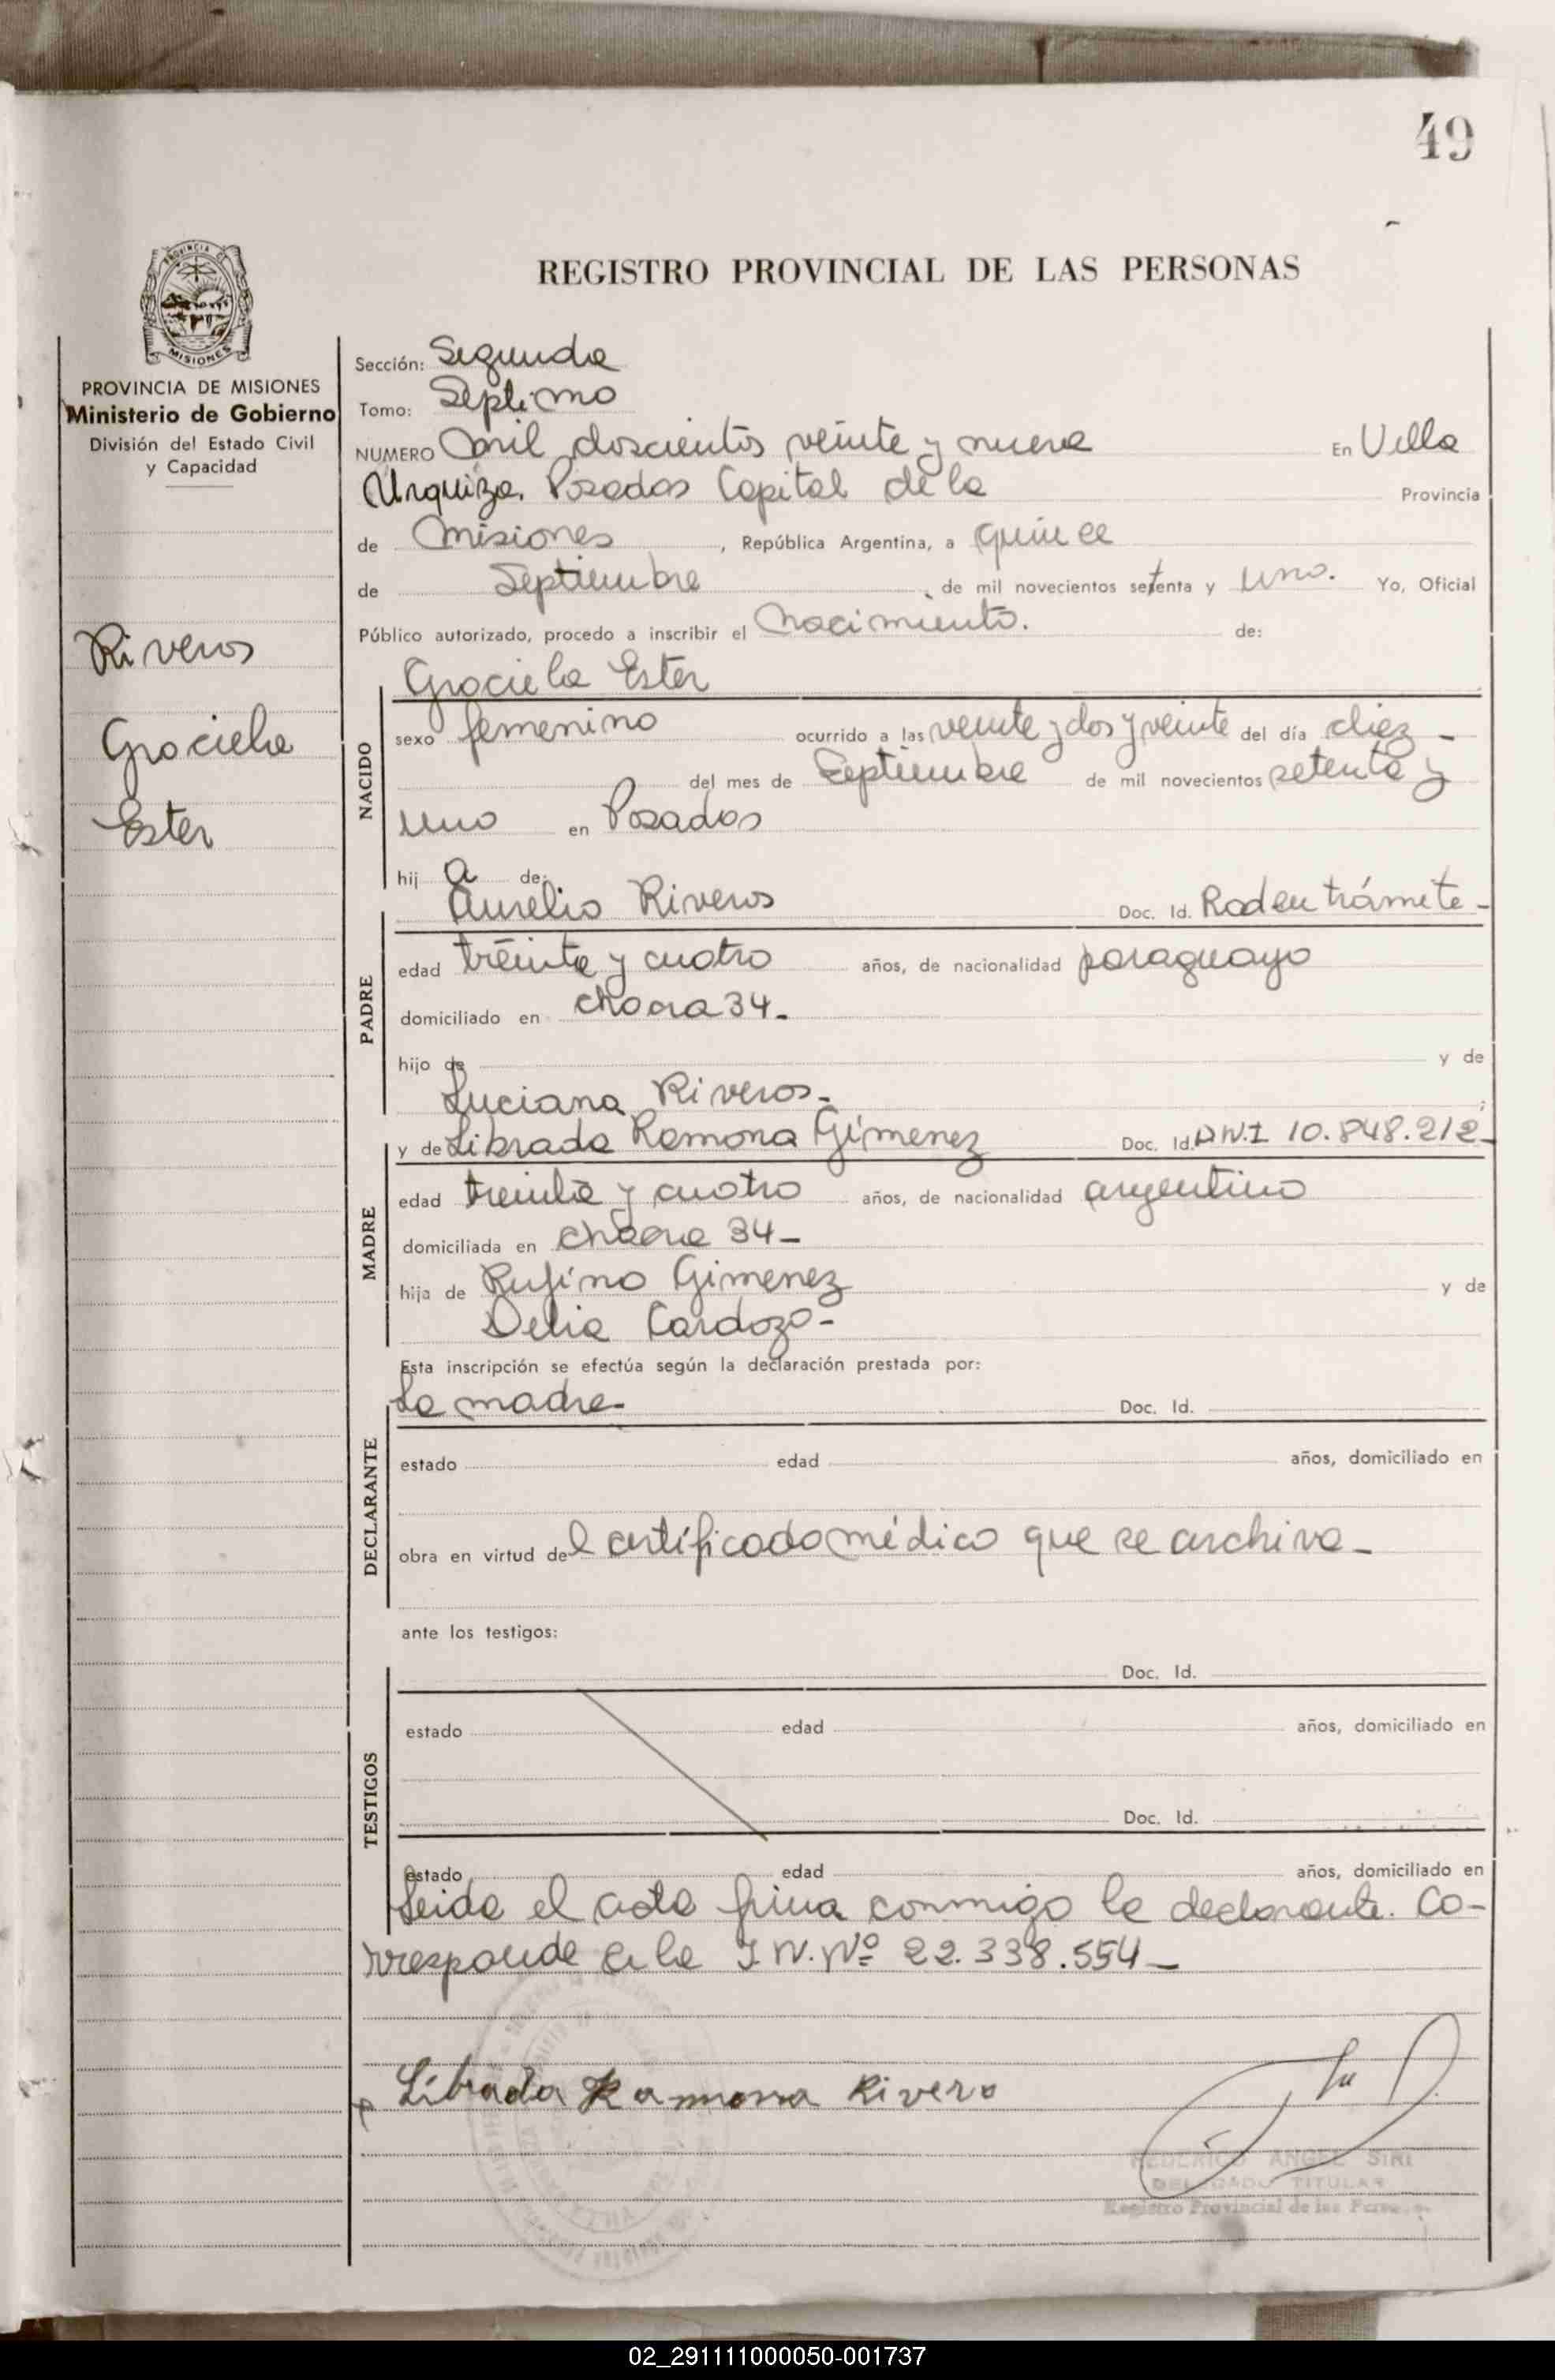 49
REGISTRO PROVINCIAL DE LAS PERSONAS
PROVINCIA DE MISIONES
Ministerio de Gobierno
División del Estado Civil
y Capacidad
Riveros
Graciela
Ester
Sección: Segunda
Tomo: Septimo
NUMERO mil doscientos veinte y nueve En Villa
Urquiza. Posadas Capital de la Provincia
de Misiones, República Argentina, a quince
de Septiembre de mil novecientos setenta y uno. Yo, Oficial
Público autorizado, procedo a inscribir el nacimiento. de:
Graciela Ester
NACIDO
sexo femenino ocurrido a las veinte y dos y veinte del día diez -
del mes de Septiembre de mil novecientos setenta y
uno en Posadas
hij a de:
Aurelio Riveros Doc. Id. Rad en trámite -
PADRE
edad treinta y cuatro años, de nacionalidad paraguayo
domiciliado en chacra 34-
hijo de y de
Luciana Riveros-
y de Librada Ramona Gimenez Doc. Id. D.N.I 10.848.212-
MADRE
edad treinta y cuatro años, de nacionalidad argentino
domiciliada en chacra 34-
hija de Rufino Gimenez y de
Delia Cardozo-
Esta inscripción se efectúa según la declaración prestada por:
La madre- Doc. Id.
DECLARANTE
estado edad años, domiciliado en
obra en virtud del certificado médico que se archiva-
ante los testigos:
Doc. Id.
TESTIGOS
estado edad años, domiciliado en
Doc. Id.
estado edad años, domiciliado en
Leida el acta firma conmigo la declarante. Co-
rresponde a la I.N.Nº 22.338.554-
Librada Ramona Rivero
FEDERICO ANGEL SIRI
DELEGADO TITULAR
Registro Provincial de las
02_291111000050-001737